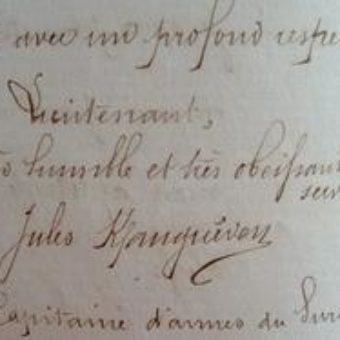 avec un profond respe
Lieutenant,
humble et très obéissant
ser
Jules
Capitaine d'armes du Sur